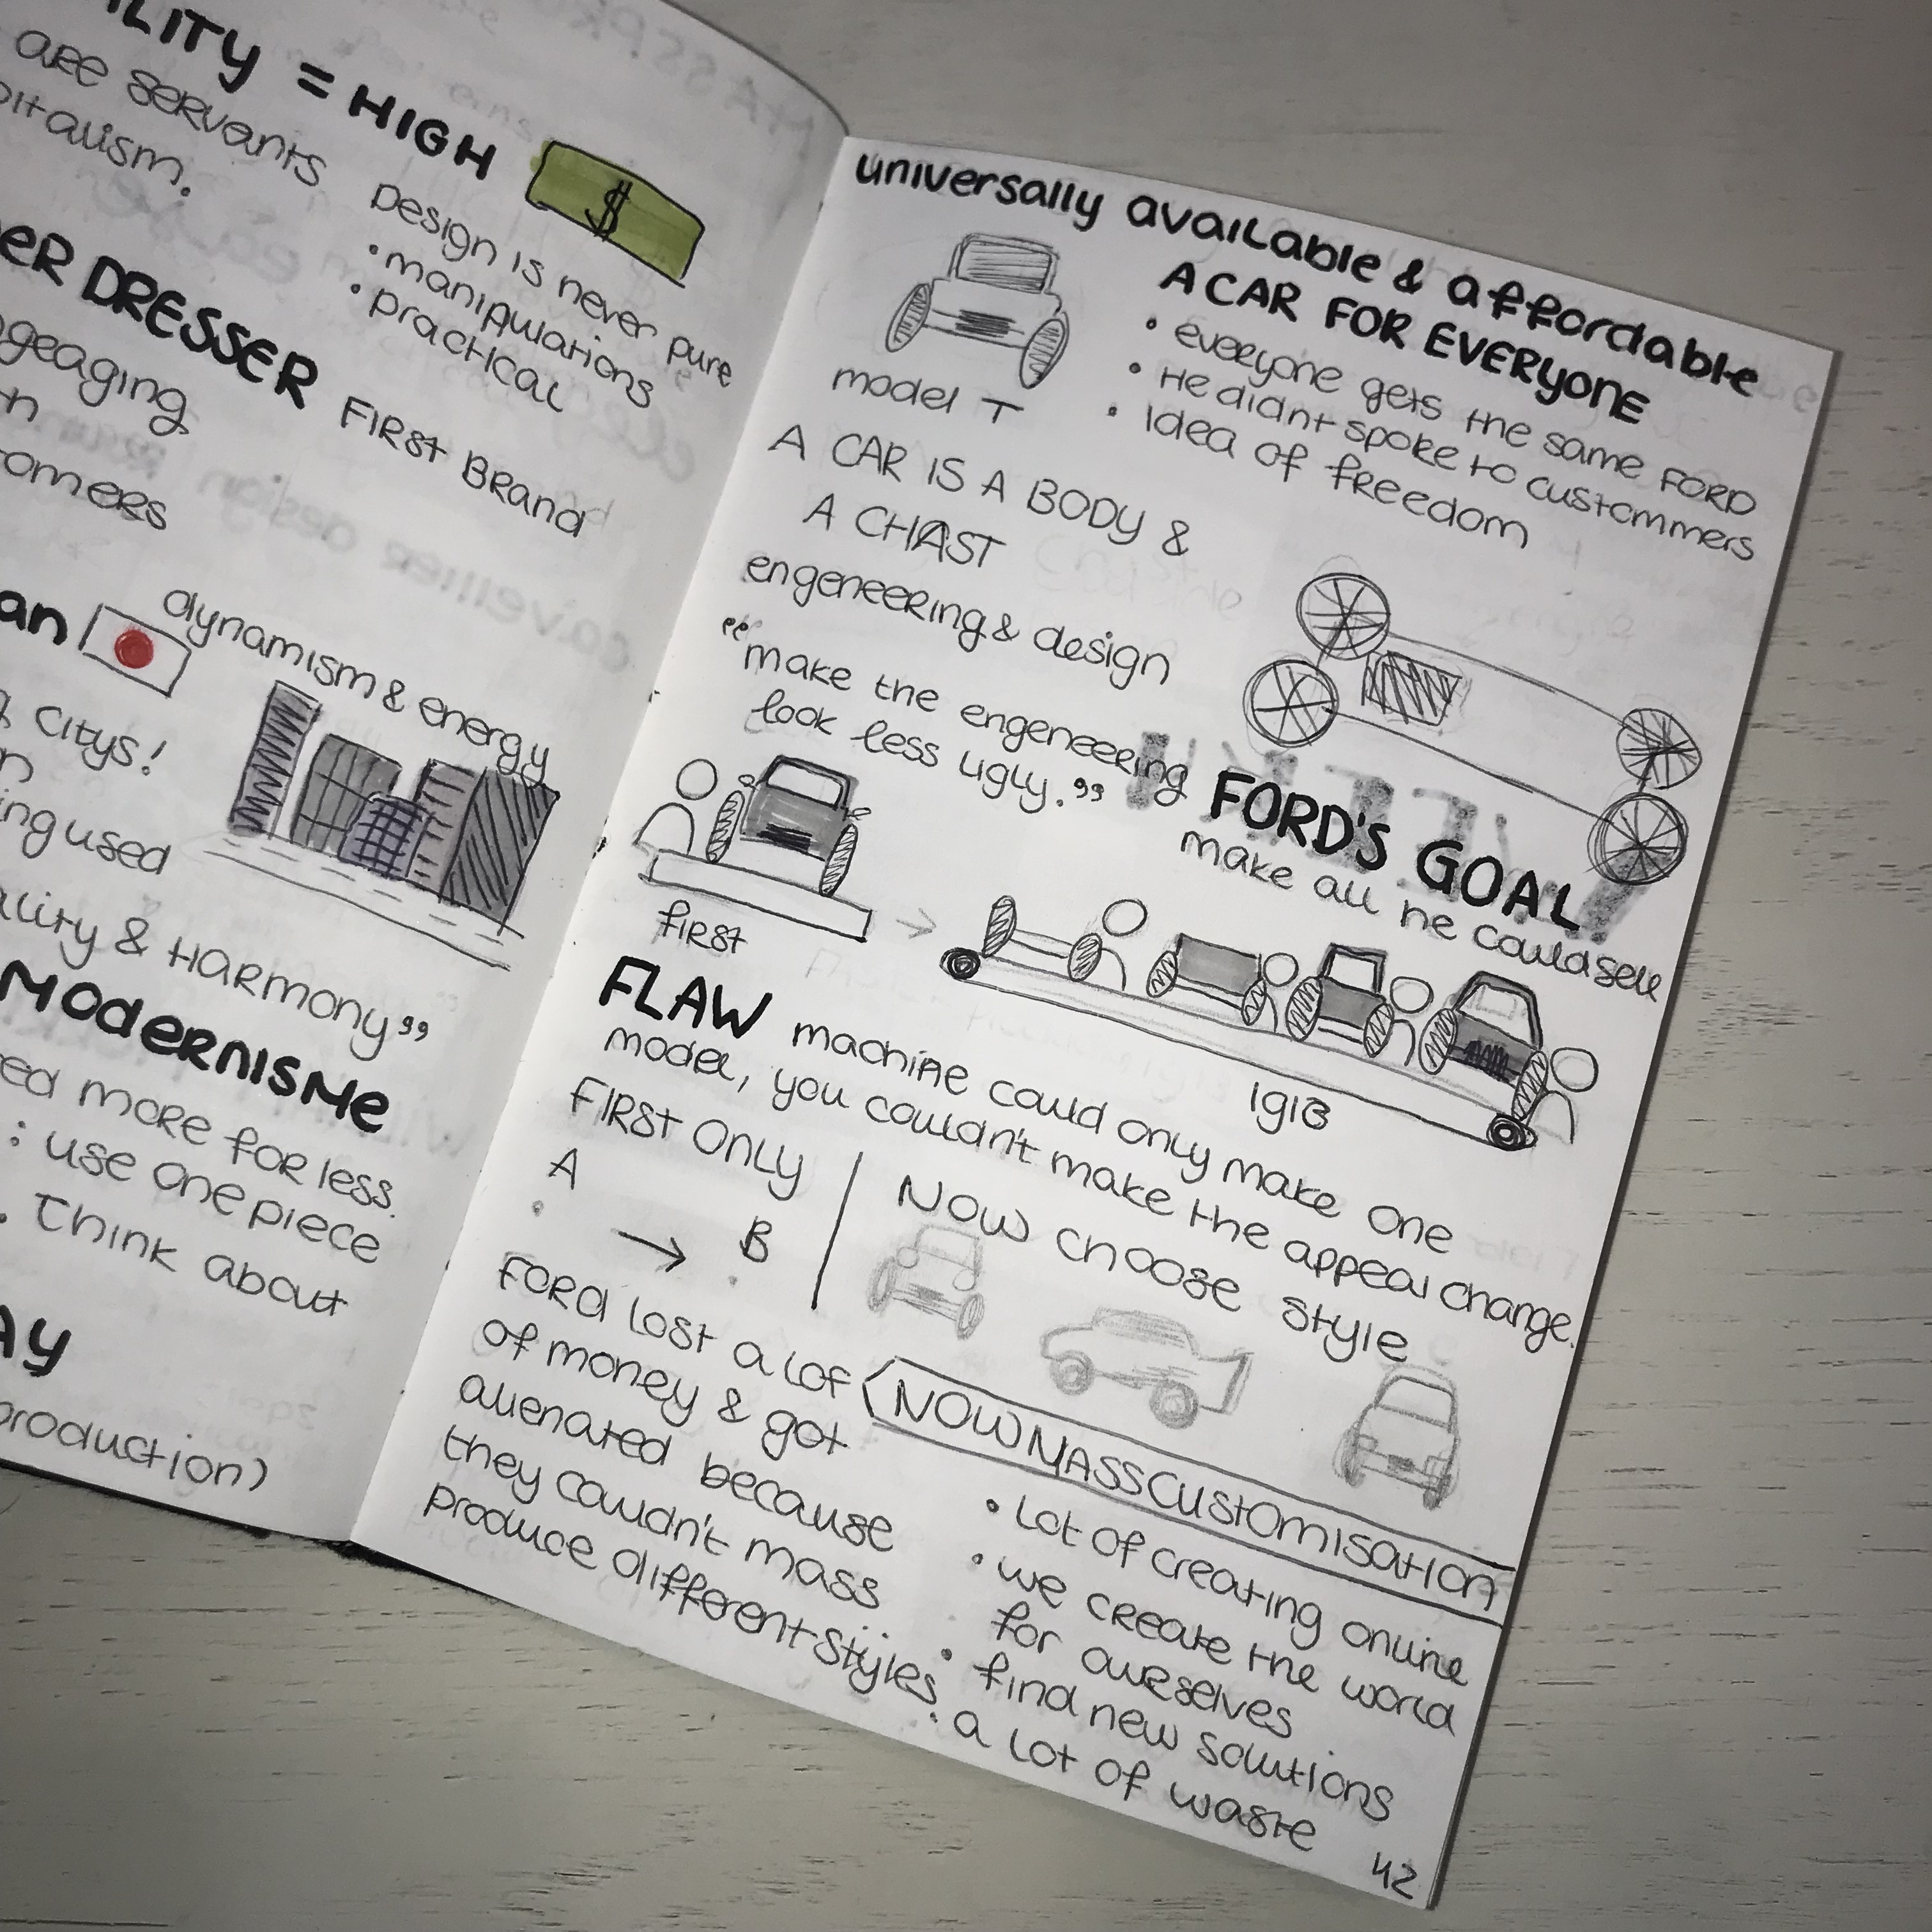 = HIGH
$
ARE SERVANTS
Design is never pure
• manipulations
• practical
DRESSER FIRST BRand
dynamism & energy
Citys!
used
& HARmony”
Modernisme
more for less.
: use one piece
. Think about
production)
universally available & affordable
A CAR FOR EVERYONE
• everyone gets the same FORD
• He didnt spoke to custommers
• Idea of freedom
model T
A CAR IS A BODY &
A CHAST
engeneering & design
“make the engeneering
look less ugly.”
FORD'S GOAL
make all he could sell
first
1913
FLAW machine could only make one
model, you couldn't make the appeal change.
FIRST ONLY
A → B
Now choose style
Ford lost a lot
of money & got
alienated because
they couldn't mass
produce different styles.
NOW MASS CUSTOMISATION
• Lot of creating online
• we create the world
for ourselves
• find new solutions
• a lot of waste
42